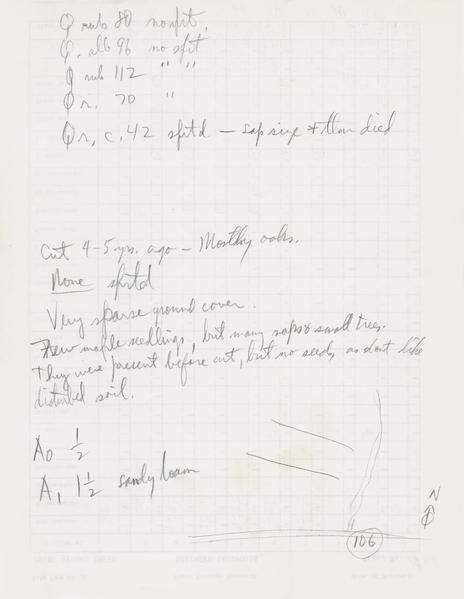 Q rub 80 no sprt.
Q. alb 96 no sprt
Q rub 112 " "
Q r. 70 "
Q r, c. 42 sprtd — sap size & then died
Cut 4-5 yrs. ago - Mostly oaks.
None sprtd
Very sparse ground cover.
Few maple seedlings, but many saps & small trees.
They were present before cut, but no seed, as dont like
disturbed soil.
A0 1/2
A1 1 1/2 sandy loam
N
106